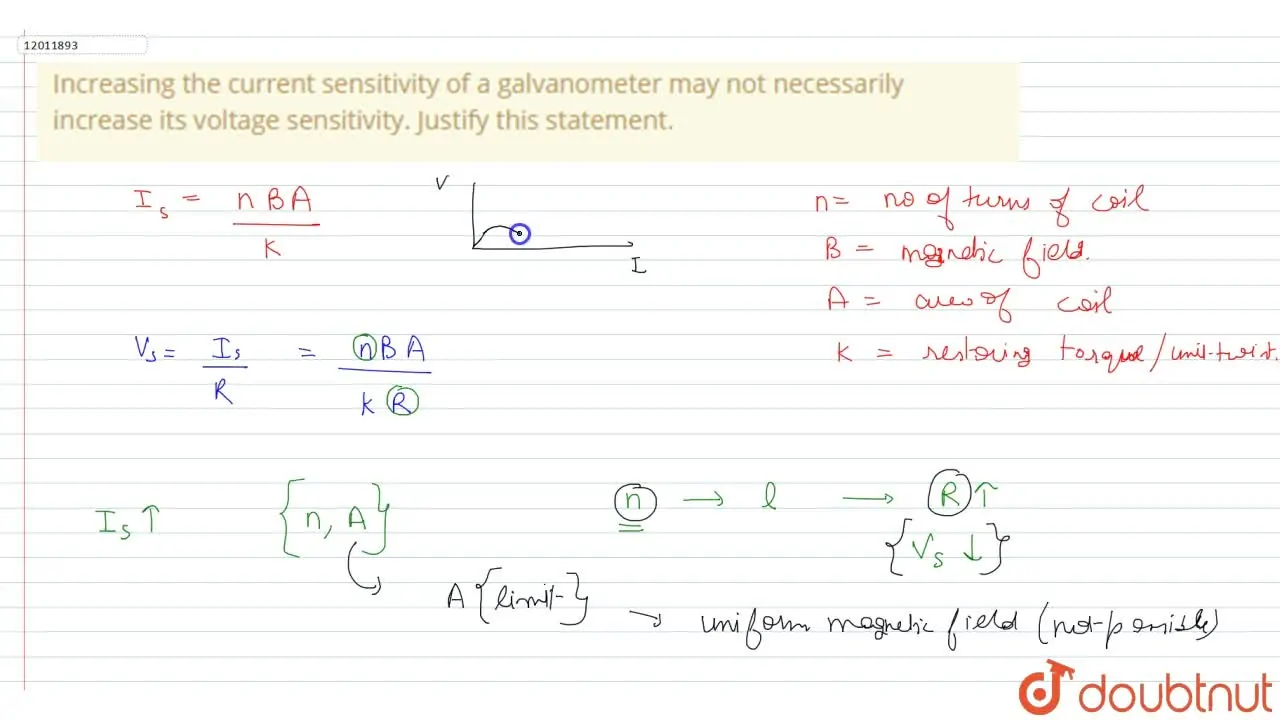 12011893
Increasing the current sensitivity of a galvanometer may not necessarily
increase its voltage sensitivity. Justify this statement.
I_s = nBA / K
V
I
n = no of turns of coil
B = magnetic field.
A = area of coil
K = restoring torque / unit-twist.
V_s = I_s / R = nBA / KR
I_s ↑ {n, A}
n → l → R ↑
{V_s ↓}
A {limit}
→ uniform magnetic field (not-possible)
doubtnut